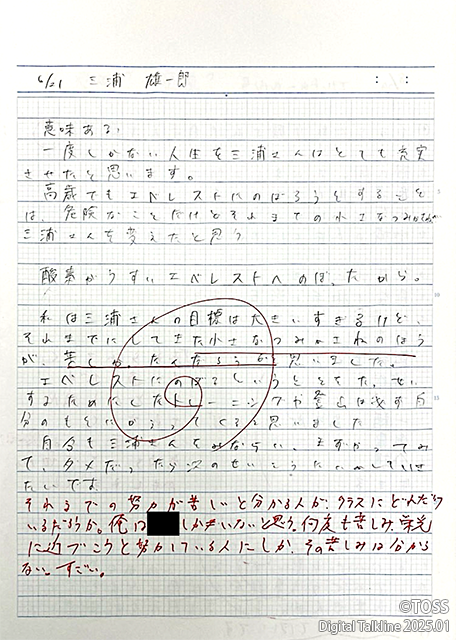 6/21 三浦 雄一郎 : :
意味ある、
一度しかない人生を三浦さんはとても充実
させたと思います。
高歳でもエベレストにのぼろうとすること
は、危険なことだけどそれまでの小さなつみかさねが
三浦さんを変えたと思う
酸素がうすいエベレストへのぼったから。
私は三浦さんの目標は大きいすぎるけど、
それまでにしてきた小さなつみかさねのほう
が、苦しかったんだろうなと思いました。
エベレストにのぼるということを、せい
するためにしたトレーニングや登山は浅す自
分のもとにかえってくると思いました
自分も三浦さんをみならい、
て、ダメだったら次のせいこうにいかしていき
たいです。
それまでの努力が苦しいと分かる人が、クラスにどれだけ
いるだろうか。俺は しかいないと思う。何度も苦しみ、栄光
に近づこうと努力している人にしか、その苦しみは分から
ない。すごい。
©TOSS
Digital Talkline 2025.01